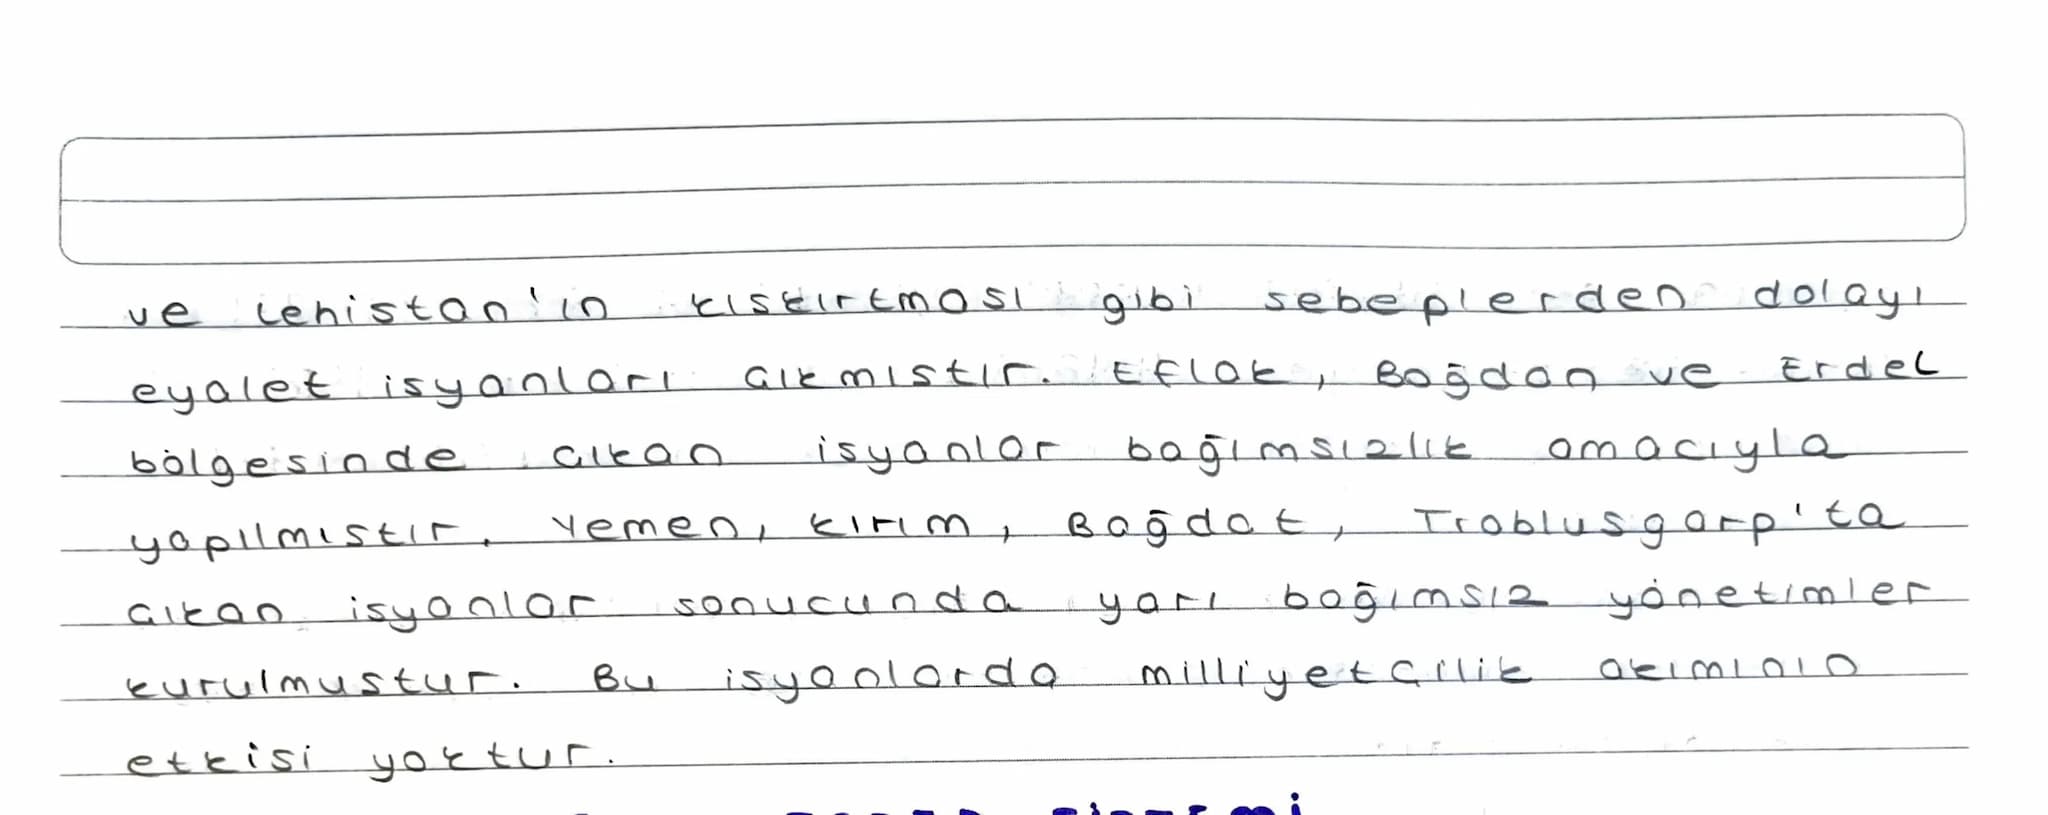 ve Lehistan'ın kıskırtması gibi sebeplerden dolayı
eyalet isyanları çıkmıstır. Eflak, Boğdan ve Erdel
bölgesinde çıkan isyanlar bağımsızlık amacıyla
yapılmıstır. Yemen, Kırım, Bağdat, Trablusgarp'ta
çıkan isyanlar sonucunda yarı bağımsız yönetimler
kurulmustur. Bu isyanlarda milliyetçilik akımının
etkisi yoktur.